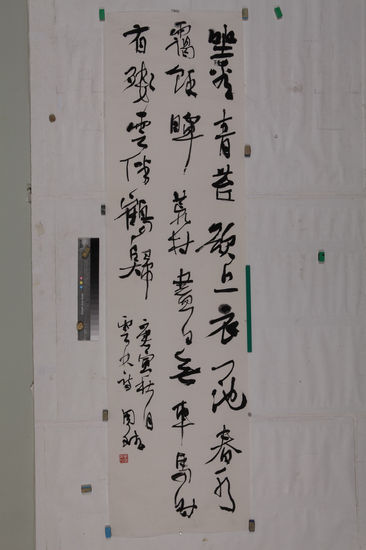 坐看青苔欲上衣一池春水
靄餘暉荒村盡日無車馬時
有殘雲伴鶴歸
庚寅秋月
雲 詩 周